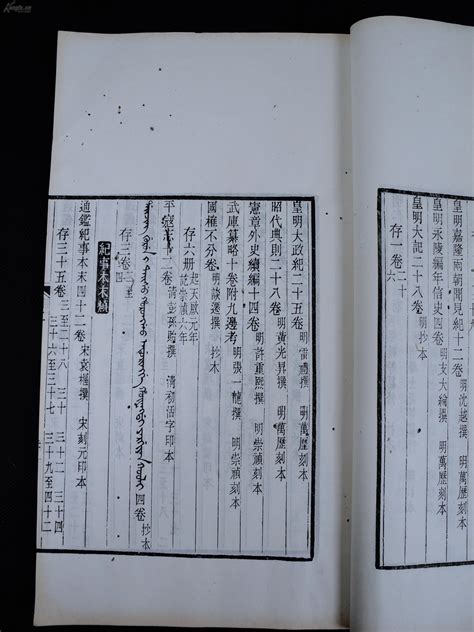 皇明嘉隆兩朝 明沈越撰 明萬歷刻本
皇明永陵編年信史四卷 明支大綸撰 明萬歷刻本
皇明大紀二十八卷 抄本
存一卷 二十
皇明大政紀二十五卷 明雷禮撰 明萬歷刻本
昭代典則二十八卷 明黃光昇撰 明萬歷刻本
憲章外史續編十四卷 明許重熙撰 明崇禎刻本
武庫纂略十卷附九邊考 明張一龍撰 明崇禎刻本
國榷不分卷 明談遷撰 抄本
存六册 起天啟元年
迄崇禎六年
平寇志十二卷 清彭孫貽撰 清初活字印本
存三卷 一至三
四卷 抄本
紀事本末類
通鑑紀事本末四十二卷 宋袁樞撰 宋刻元印本
存三十五卷 三至二十八 三十二 三十四
三十六至三十七 三十九至四十二